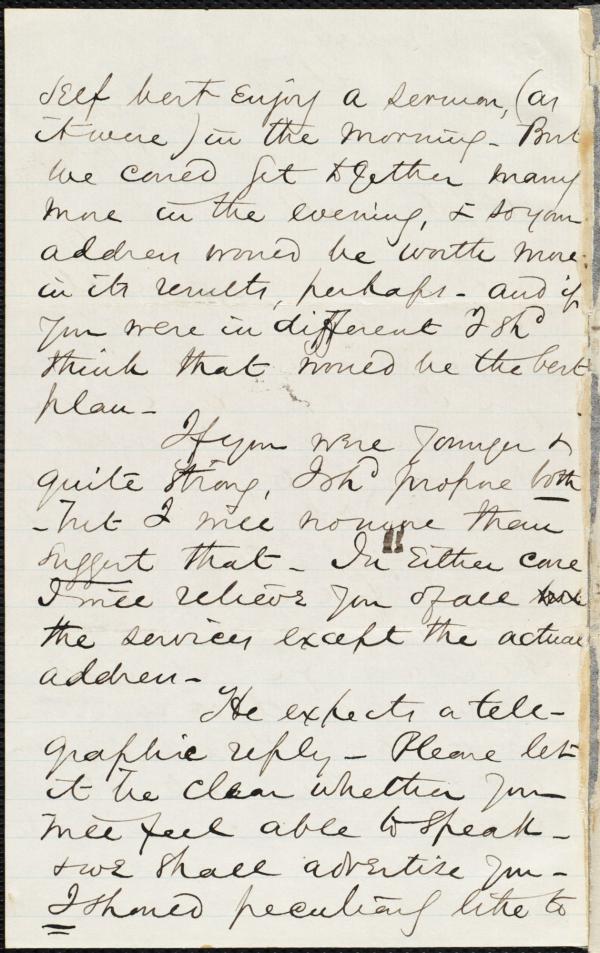 self best enjoy a sermon, (as
it were) in the morning - But
we could get together many
more in the evening, & so your
address would be worth more
in its results, perhaps - and if
you were indifferent I shd
think that would be the best
plan -
If you were younger &
quite strong, I shd propose both
- but I will no more than
suggest that - In either case
I will relieve you of all
the services except the actual
address -
He expects a tele-
graphic reply - Please let
it be clear whether you
will feel able to speak -
& we shall advertise you -
I should peculiarly like to